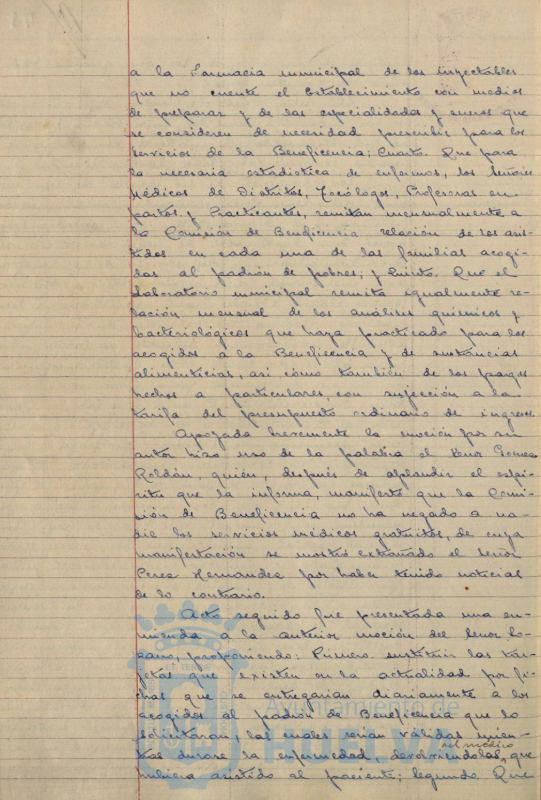 a la Farmacia municipal de los inyectables
que no cuente el Establecimiento con medios
de preparar y de las especialidades y sueros que
se consideren de necesidad prescribir para los
servicios de la Beneficencia; Cuarto. Que para
la necesaria estadistica de enfermos, los Señores
Médicos de Distritos, Tocólogos, Profesoras en
partos, y Practicantes, remitan mensualmente a
la Comisión de Beneficencia relación de los asis-
tidos en cada una de las familias acogi-
das al padrón de pobres; y Quinto. Que el
Laboratorio municipal remita igualmente re-
lación mensual de los análisis químicos y
bacteriológicos que haya practicado para los
acogidos a la Beneficencia y de sustancias
alimenticias, asi como también de los pagos
hechos a particulares, con sujección a la
tarifa del presupuesto ordinario de ingresos.
Apoyada brevemente la moción por su
autor hizo uso de la palabra el Señor Gomez
Roldán, quién, después de aplaudir el espí-
ritu que la informa, manifestó que la Comi-
sión de Beneficencia no ha negado a na-
die los servicios médicos gratuitos, de cuya
manifestación se mostró extrañado el Señor
Perez Hernandez por haber tenido noticias
de lo contrario.
Acto seguido fue presentada una en-
mienda a la anterior moción del Señor Lo-
zano, proponiendo: Primero. sustituir las tar-
jetas que existen en la actualidad por fi-
chas que se entregarian diariamente a los
acogidos al padrón de Beneficencia que lo
solicitaran, las cuales serian válidas mien-
tras durare la enfermedad, devolviendolas, el médico que
hubiera asistido al paciente; Segundo. Que
Ayuntamiento de
HUELVA